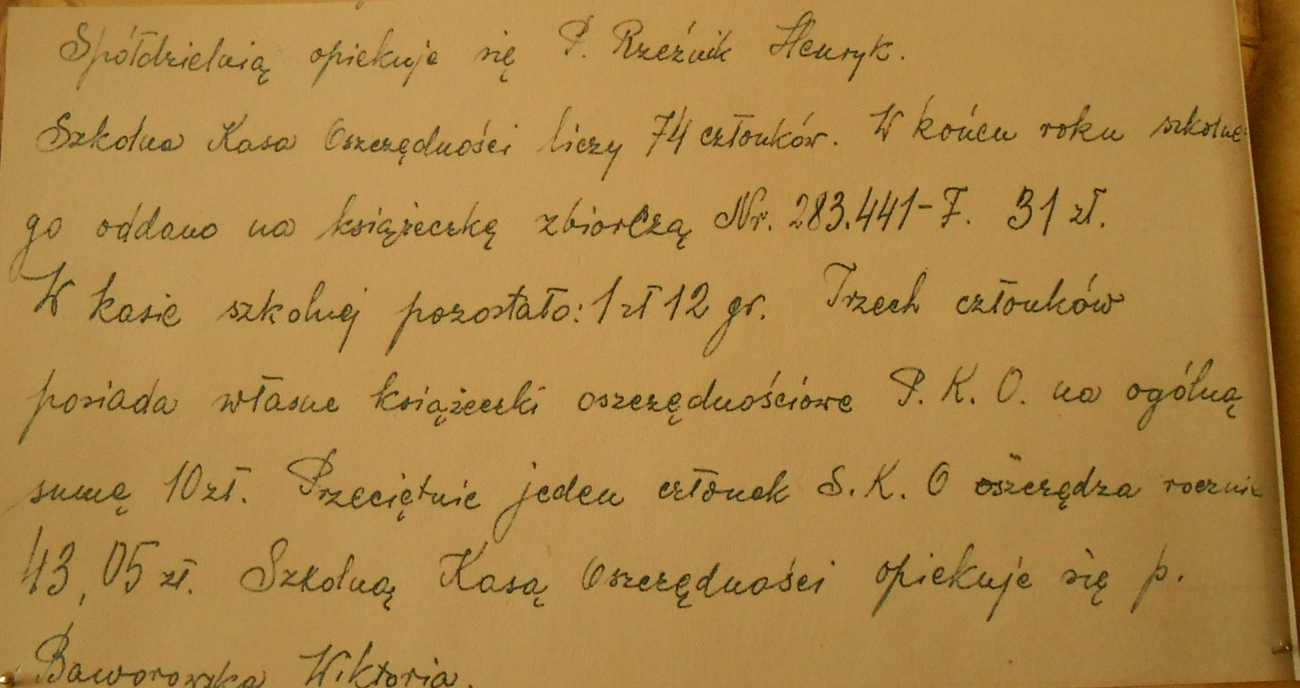 Spółdzielnią opiekuje się P. Rzeźnik Henryk.
Szkolna Kasa Oszczędności liczy 74 członków. W końcu roku szkolne-
go oddano na książeczkę zbiorczą Nr. 283.441-F. 31 zł.
W kasie szkolnej pozostało: 1 zł 12 gr. Trzech członków
posiada własne książeczki oszczędnościowe P. K. O. na ogólną
sumę 10 zł. Przeciętnie jeden członek S. K. O oszczędza rocznie
43,05 zł. Szkolną Kasą Oszczędności opiekuje się p.
Baworowska Wiktoria.